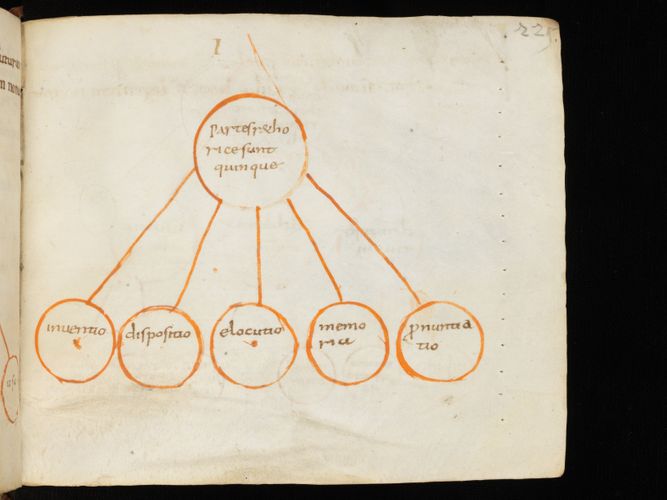 225
I
Partes r&ho
rice sunt
quinque
inventio
dispositio
elocutio
memo
ria
ꝓnuntia
tio